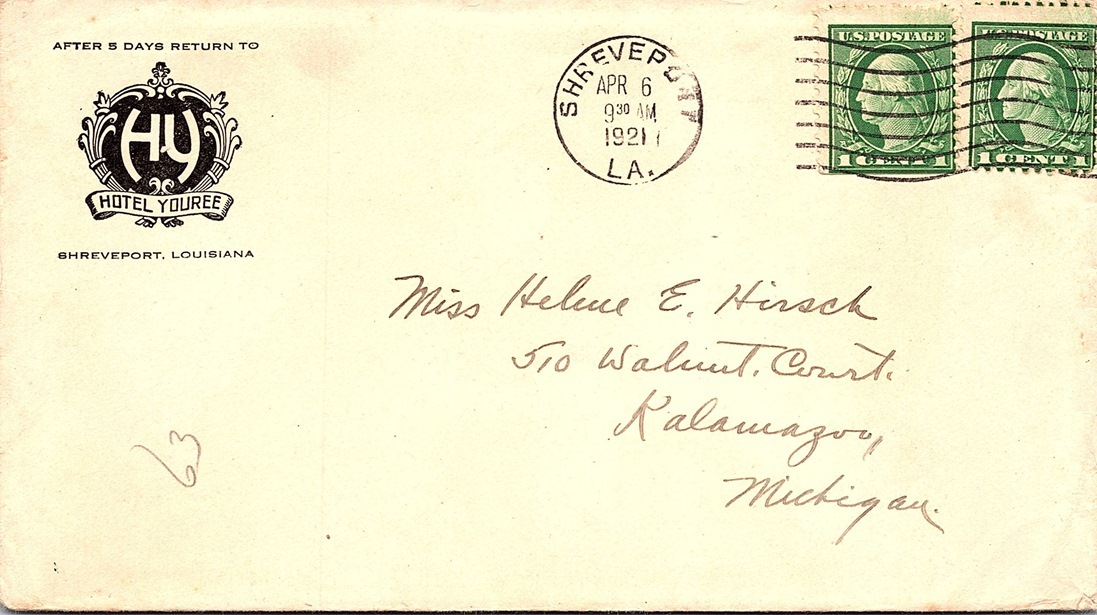 AFTER 5 DAYS RETURN TO
HY
HOTEL YOUREE
SHREVEPORT, LOUISIANA
SHREVEPORT
APR 6
9 30 AM
1921
LA.
U.S. POSTAGE
1 CENT 1
U.S. POSTAGE
1 CENT 1
Miss Helene E. Hirsch
510 Walnut. Court.
Kalamazoo,
Michigan.
63